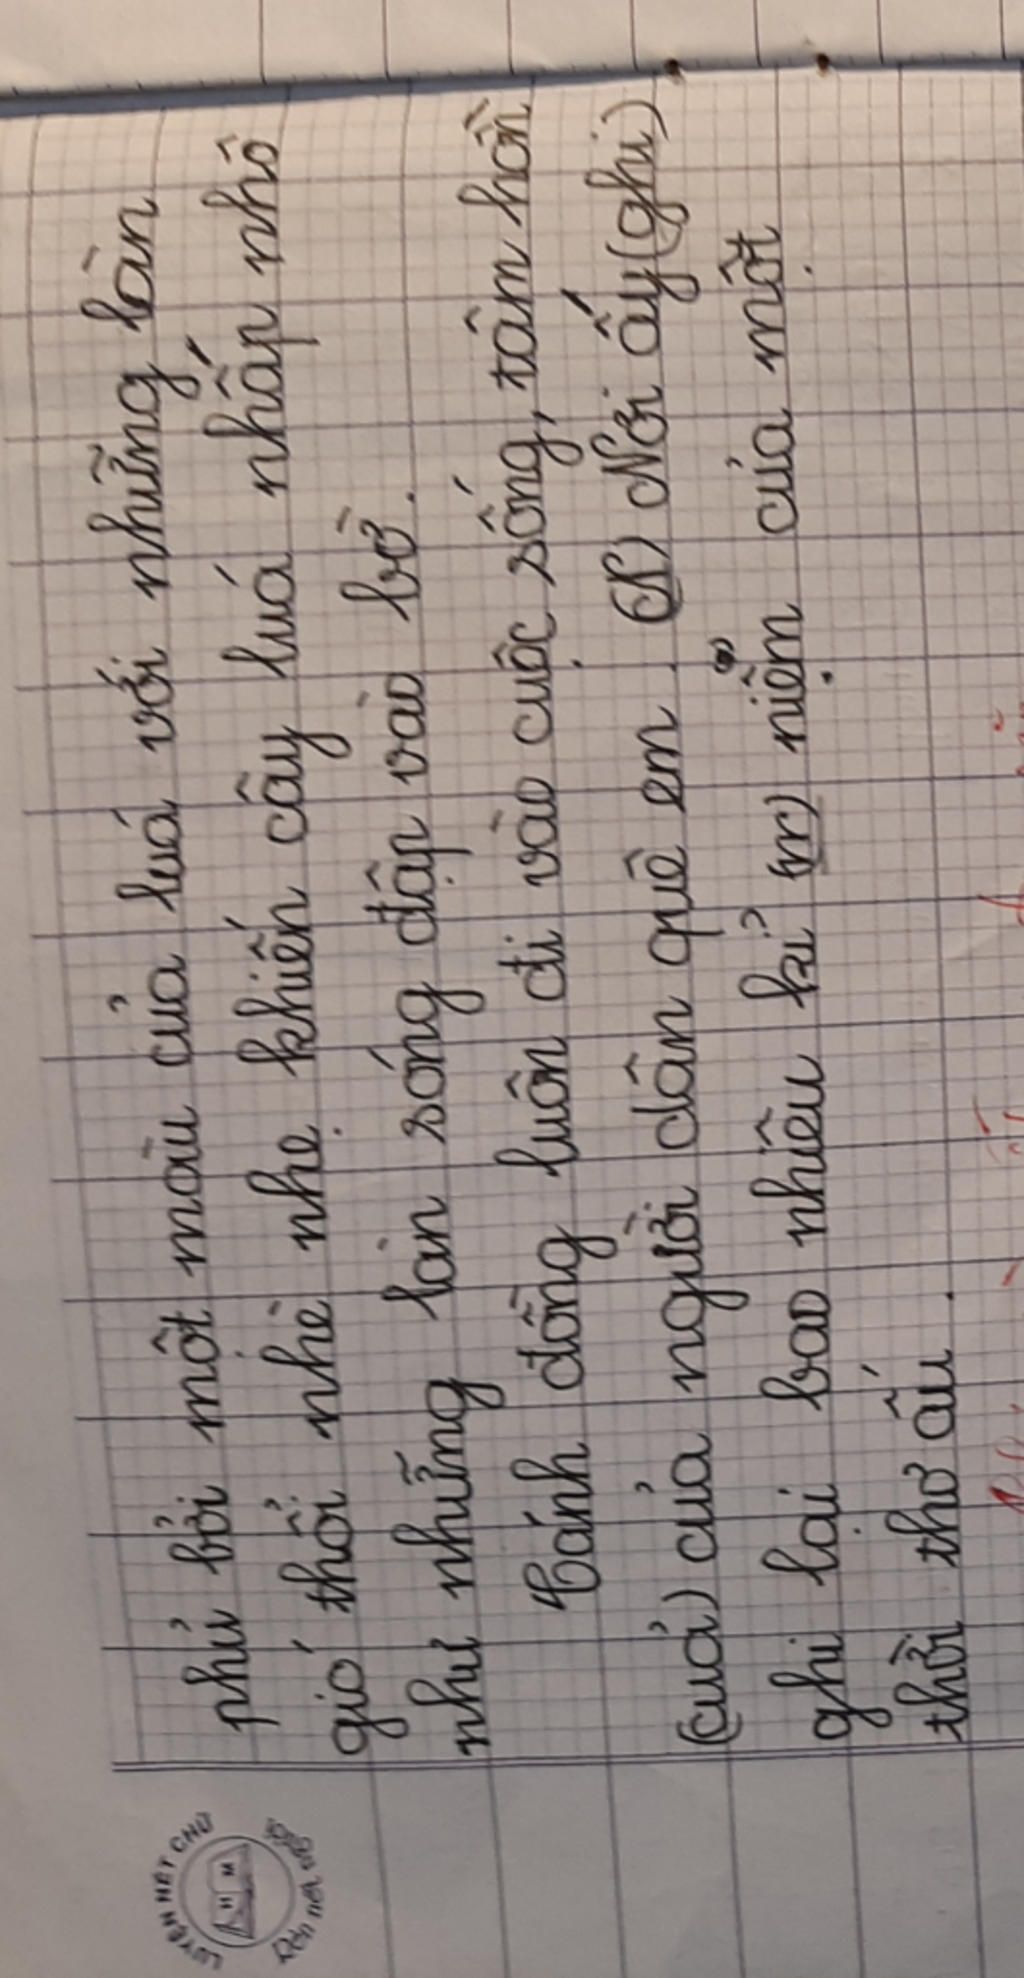 LUYỆN NÉT CHỮ
Rèn nết người
phủ bởi một màu của luá với những làn
gió thổi nhè nhẹ khiến cây luá nhấp nhô
như những làn sóng đập vào bờ.
Cánh đồng luôn đi vào cuộc sống, tâm hồn
(cuả) của người dân quê em. (N) Nơi ấy (ghi)
ghi lại bao nhiêu kỉ (n) niệm của một
thời thơ ấu.